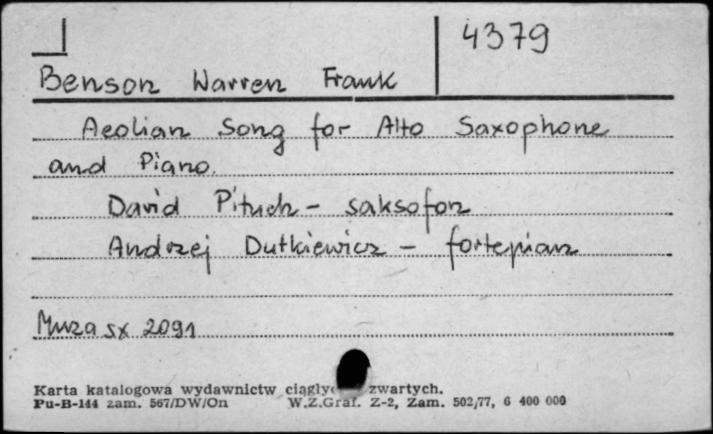 4379
Benson Warren Frank
Aeolian Song for Alto Saxophone
and Piano.
David Pituch - saksofon
Andrzej Dutkiewicz - fortepian
Muza sx 2091
Karta katalogowa wydawnictw zwartych.
Pu-B-144 zam. 567/DW/On W.Z.Graf. Z-2, Zam. 502/77, 6 400 000